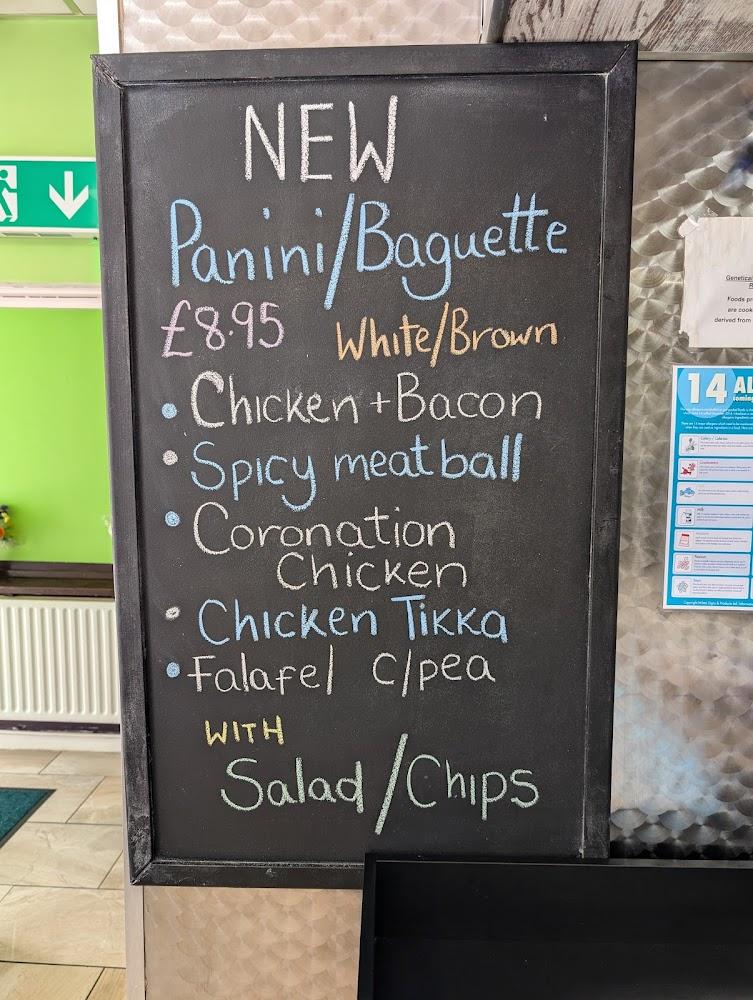 NEW
Panini/Baguette
£8.95 White/Brown
• Chicken + Bacon
• Spicy meatball
• Coronation
Chicken
• Chicken Tikka
• Falafel c/pea
WITH
Salad/Chips
Genetical
Foods pr
are cook
derived from
14 AL
coming
Copyright